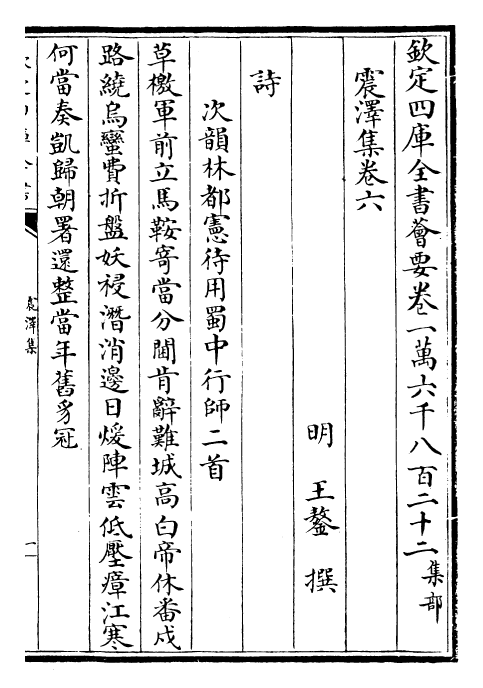 欽定四庫全書薈要卷一萬六千八百二十二集部
震澤集卷六
明 王鏊 撰
詩
次韻林都憲待用蜀中行師二首
草檄軍前立馬鞍寄當分閫肯辭難城高白帝休番戍
路繞烏蠻費折盤妖祲潛消邊日煖陣雲低壓瘴江寒
何當奏凱歸朝署還整當年舊豸冠
震澤集
一